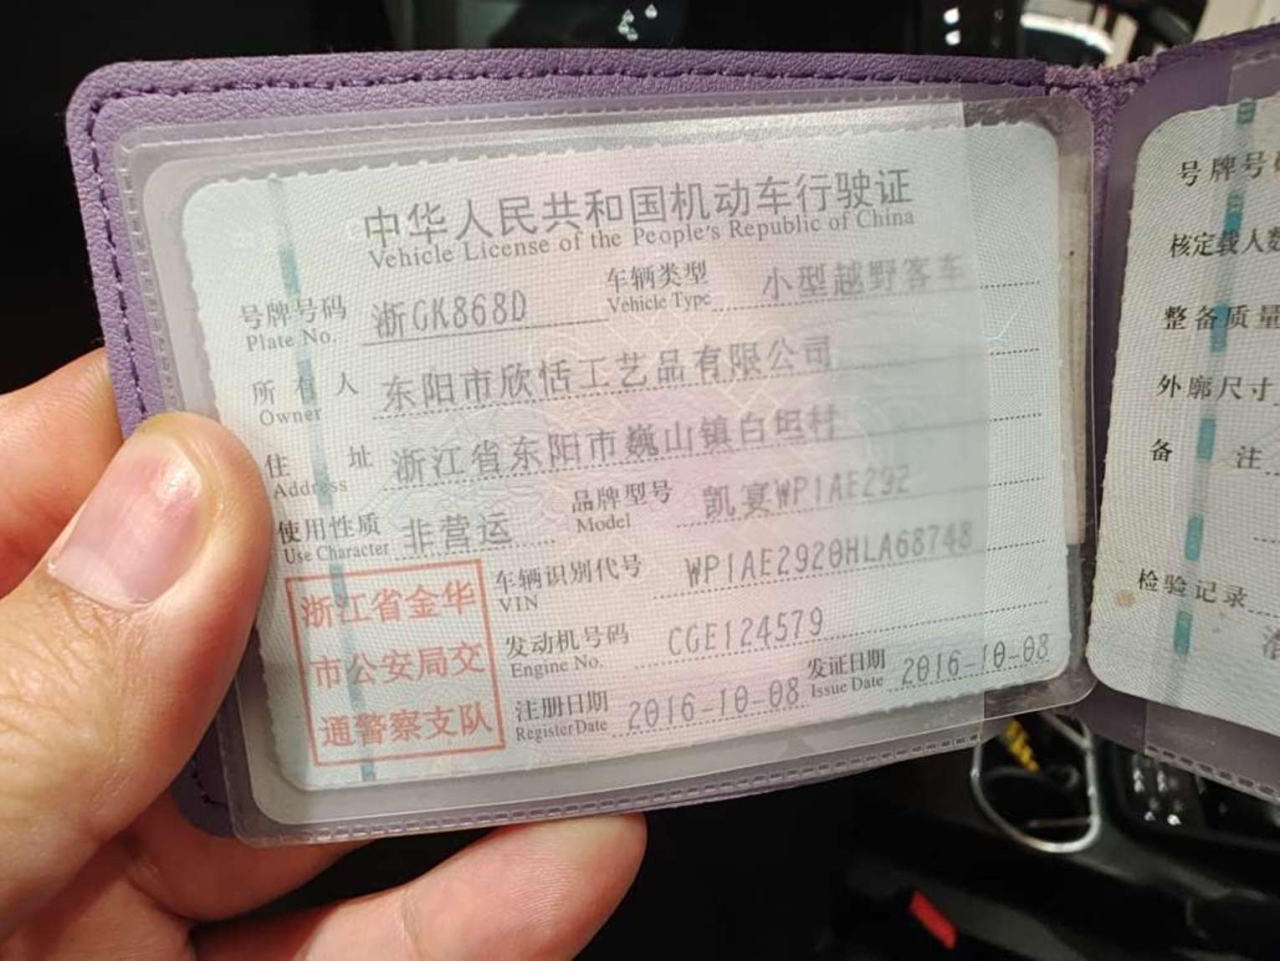 中华人民共和国机动车行驶证
Vehicle License of the People's Republic of China
号牌号码 浙GK868D 车辆类型 小型越野客车
Plate No. Vehicle Type
所有人 东阳市欣恬工艺品有限公司
Owner
住址 浙江省东阳市巍山镇白坦村
Address
使用性质 非营运 品牌型号 凯宴WP1AE292
Use Character Model
浙江省金华
市公安局交
通警察支队
车辆识别代号 WP1AE2920HLA68748
VIN
发动机号码 CGE124579
Engine No.
注册日期 2016-10-08 发证日期 2016-10-08
Register Date Issue Date
号牌号
核定载人数
整备质量
外廓尺寸
备注
检验记录